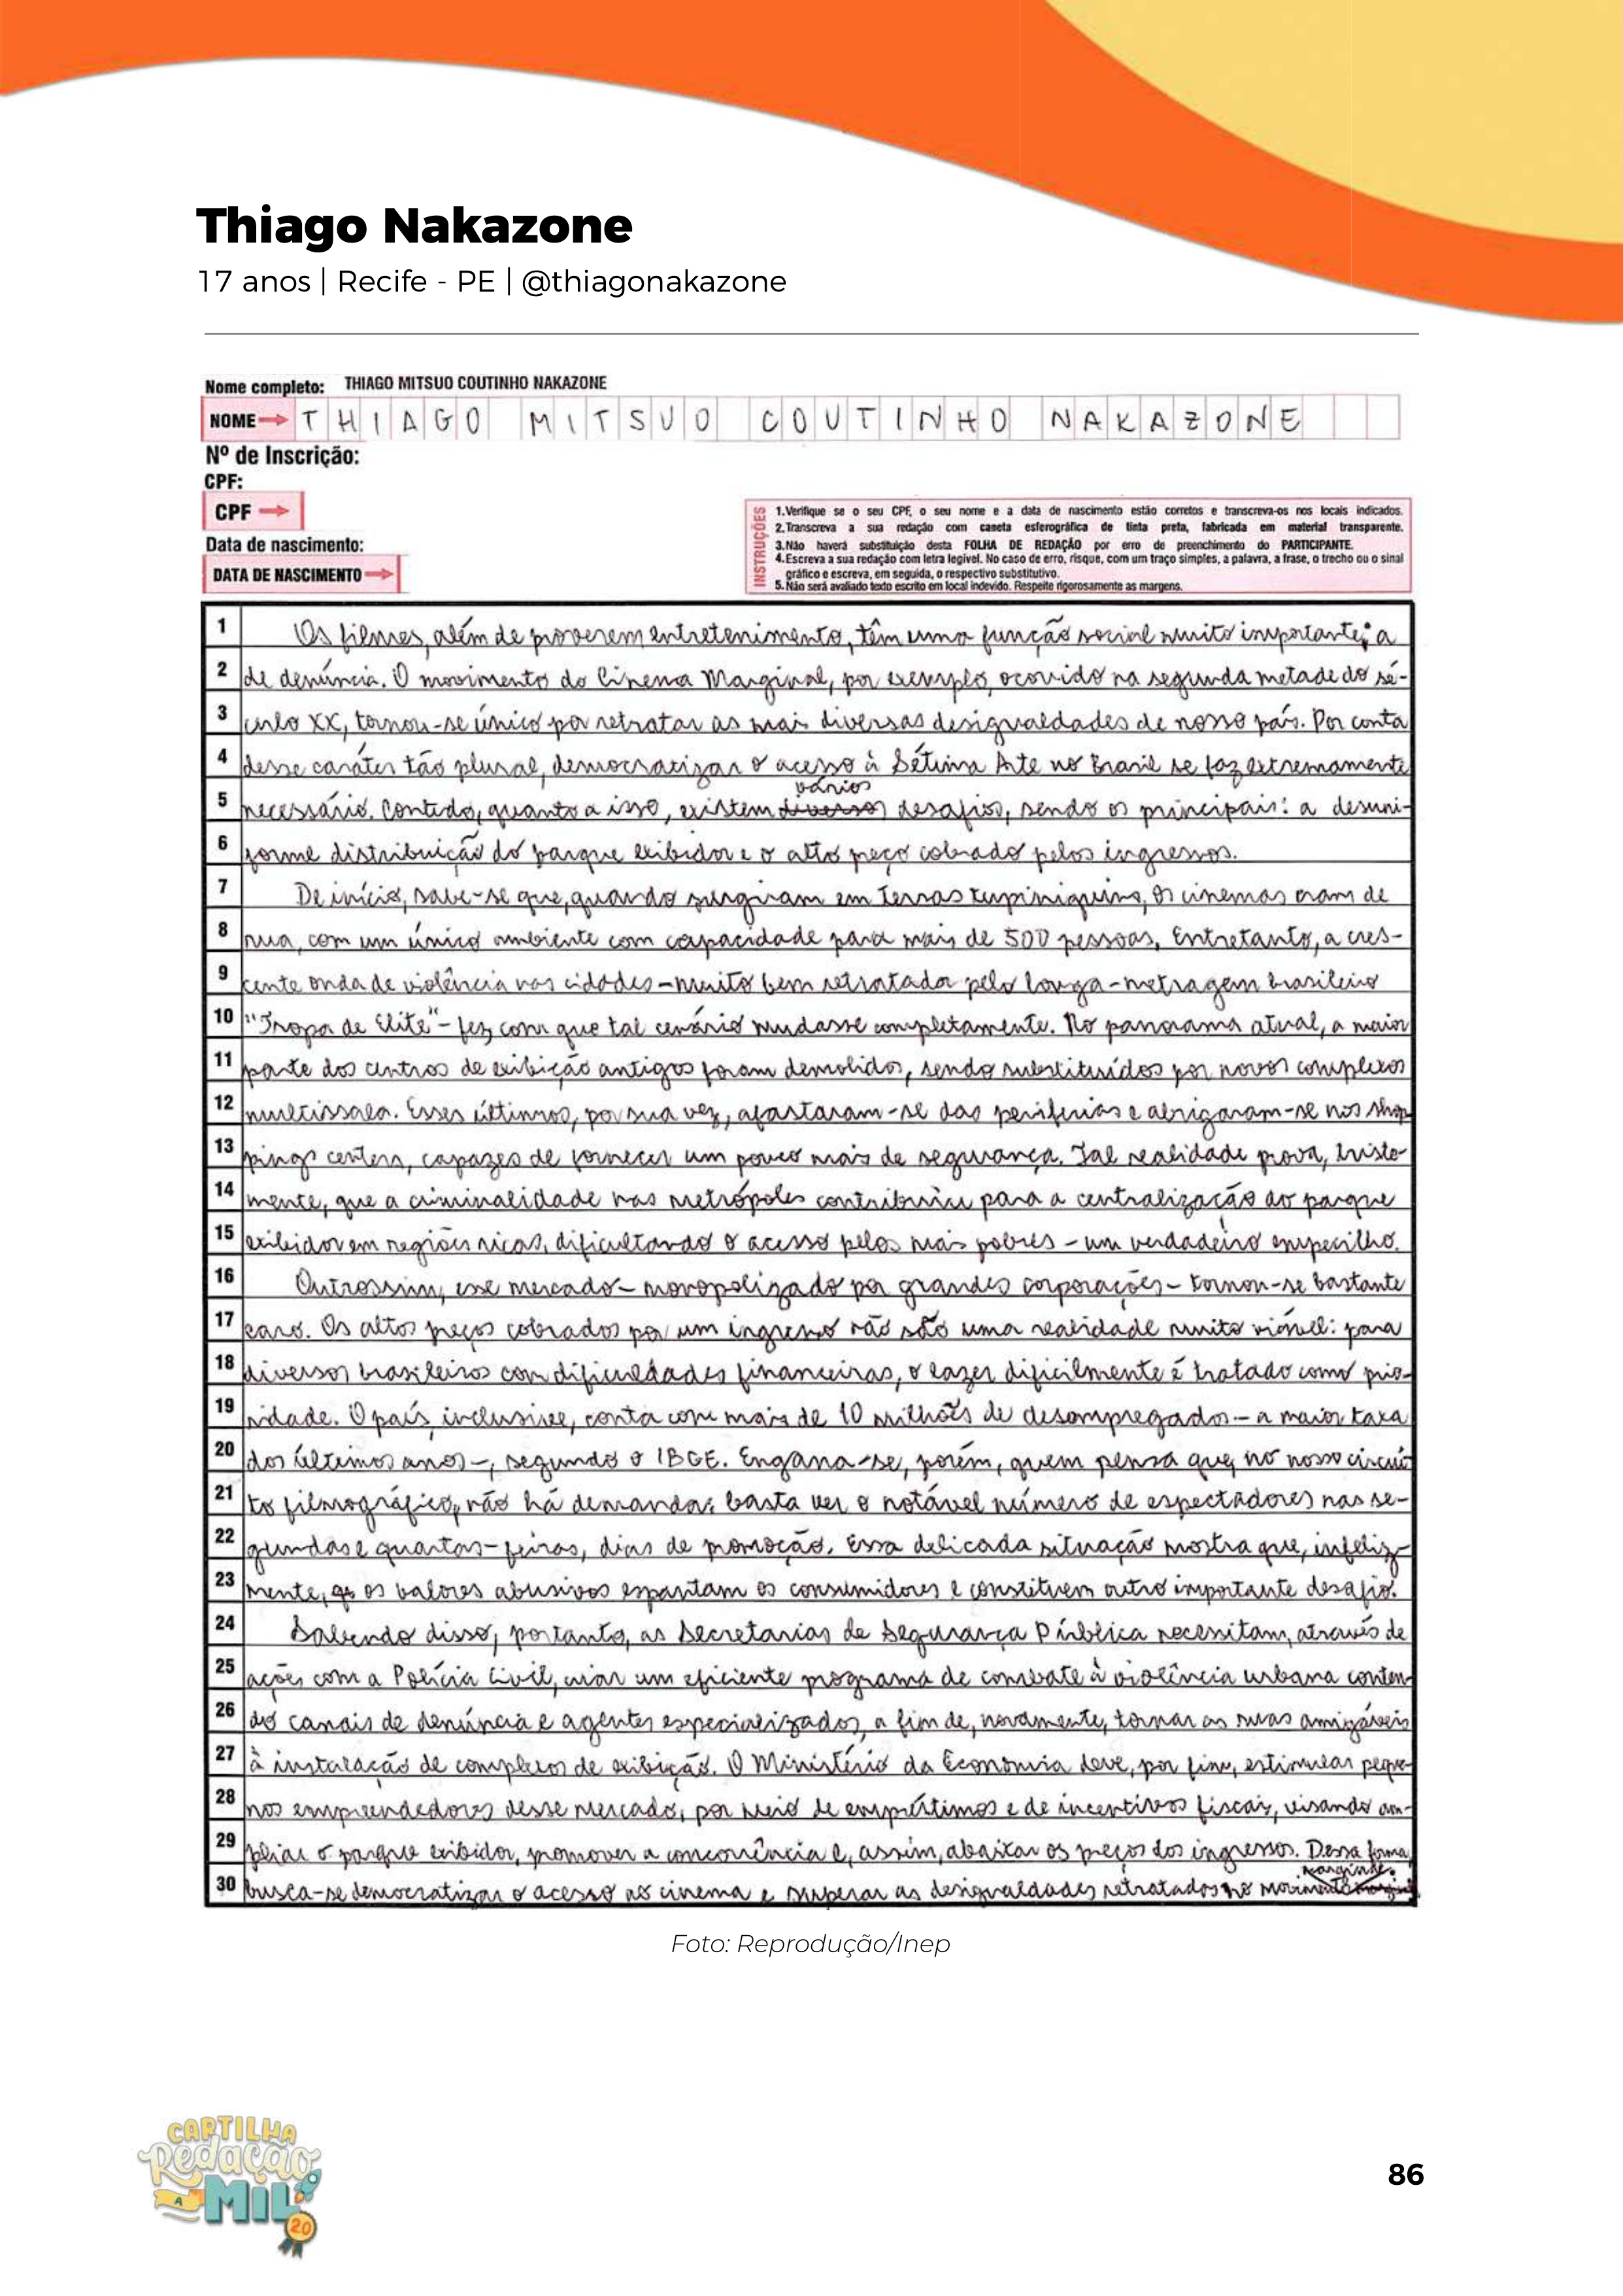 Thiago Nakazone
17 anos | Recife - PE | @thiagonakazone
Nome completo: THIAGO MITSUO COUTINHO NAKAZONE
NOME THIAGO MITSUO COUTINHO NAKAZONE
Nº de Inscrição:
CPF:
CPF
Data de nascimento:
DATA DE NASCIMENTO
INSTRUÇÕES
1.Verifique se o seu CPF, o seu nome e a data de nascimento estão corretos e transcreva-os nos locais indicados.
2.Transcreva a sua redação com caneta esferográfica de tinta preta, fabricada em material transparente.
3.Não haverá substituição desta FOLHA DE REDAÇÃO por erro de preenchimento do PARTICIPANTE.
4.Escreva a sua redação com letra legível. No caso de erro, risque, com um traço simples, a palavra, a frase, o trecho ou o sinal
gráfico e escreva, em seguida, o respectivo substitutivo.
5.Não será avaliado texto escrito em local indevido. Respeite rigorosamente as margens.
1 Os filmes, além de proverem entretenimento, têm uma função social muito importante: a
2 de denúncia. O movimento do Cinema Marginal, por exemplo, ocorrido na segunda metade do sé-
3 culo XX, tornou-se único por retratar as mais diversas desigualdades de nosso país. Por conta
4 desse caráter tão plural, democratizar o acesso à Sétima Arte no Brasil se faz extremamente
5 necessário. Contudo, quanto a isso, existem diversos vários desafios, sendo os principais: a desuni-
6 forme distribuição do parque exibidor e o alto preço cobrado pelos ingressos.
7 De início, sabe-se que, quando surgiram em terras tupiniquins, os cinemas eram de
8 rua, com um único ambiente com capacidade para mais de 500 pessoas. Entretanto, a cres-
9 cente onda de violência nas cidades - muito bem retratada pelo longa-metragem brasileiro
10 "Tropa de Elite" - fez com que tal cenário mudasse completamente. No panorama atual, a maior
11 parte dos centros de exibição antigos foram demolidos, sendo substituídos por novos complexos
12 multissala. Esses últimos, por sua vez, afastaram-se das periferias e abrigaram-se nos shop
13 pings centers, capazes de fornecer um pouco mais de segurança. Tal realidade prova, triste-
14 mente, que a criminalidade nas metrópoles contribuiu para a centralização do parque
15 exibidor em regiões ricas, dificultando o acesso pelos mais pobres - um verdadeiro empecilho.
16 Outrossim, esse mercado - monopolizado por grandes corporações - tornou-se bastante
17 caro. Os altos preços cobrados por um ingresso não são uma realidade muito viável: para
18 diversos brasileiros com dificuldades financeiras, o lazer dificilmente é tratado como prio-
19 ridade. O país, inclusive, conta com mais de 10 milhões de desempregados - a maior taxa
20 dos últimos anos -, segundo o IBGE. Engana-se, porém, quem pensa que, no nosso circui
21 to filmográfico, não há demanda: basta ver o notável número de espectadores nas se-
22 gundas e quartas-feiras, dias de promoção. Essa delicada situação mostra que, infeliz-
23 mente, os valores abusivos espantam os consumidores e constituem outro importante desafio.
24 Sabendo disso, portanto, as Secretarias de Segurança Pública necessitam, através de
25 ações com a Polícia Civil, criar um eficiente programa de combate à violência urbana conten-
26 do canais de denúncia e agentes especializados, a fim de, novamente, tornar as ruas amigáveis
27 à instalação de complexos de exibição. O Ministério da Economia deve, por fim, estimular peque-
28 nos empreendedores desse mercado, por meio de empréstimos e de incentivos fiscais, visando am-
29 pliar o parque exibidor, promover a concorrência e, assim, abaixar os preços dos ingressos. Dessa forma,
30 busca-se democratizar o acesso ao cinema e superar as desigualdades retratadas no movimento marginal.
Foto: Reprodução/Inep
CARTILHA
Redação
A MIL
20
86